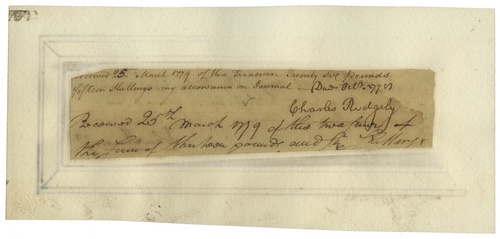 Received 25 March 1779 of the Treasurer Twenty six pounds
fifteen Shillings my allowance on Journal
Charles Ridgely
Received 25th March 1779 of the Treasurer of
the Sum of thirteen pounds and Shillings